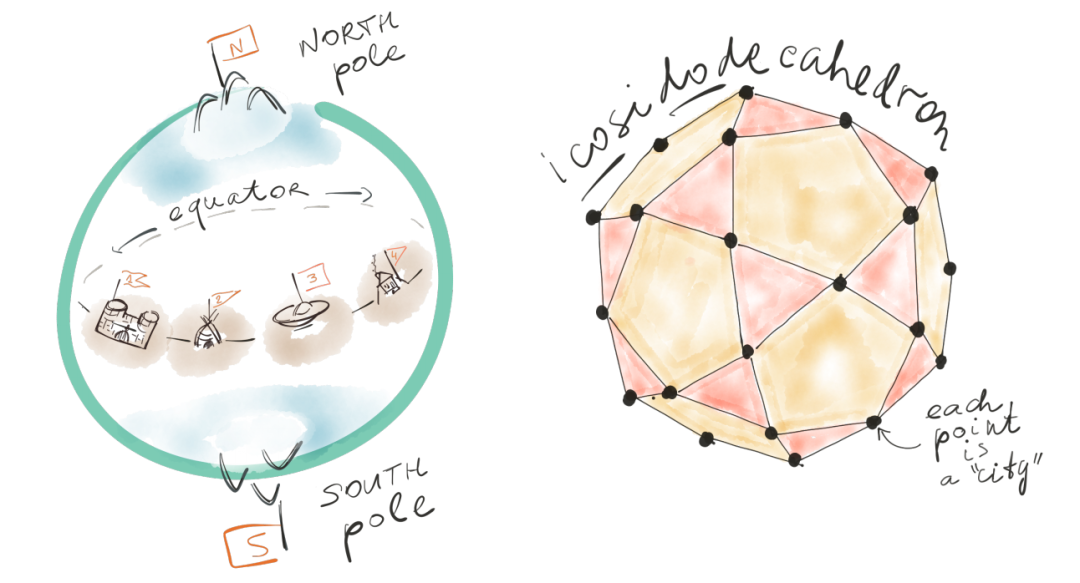 N
NORTH
pole
equator
1
2
3
4
SOUTH
pole
S
icosidodecahedron
each
point
is
a "city"